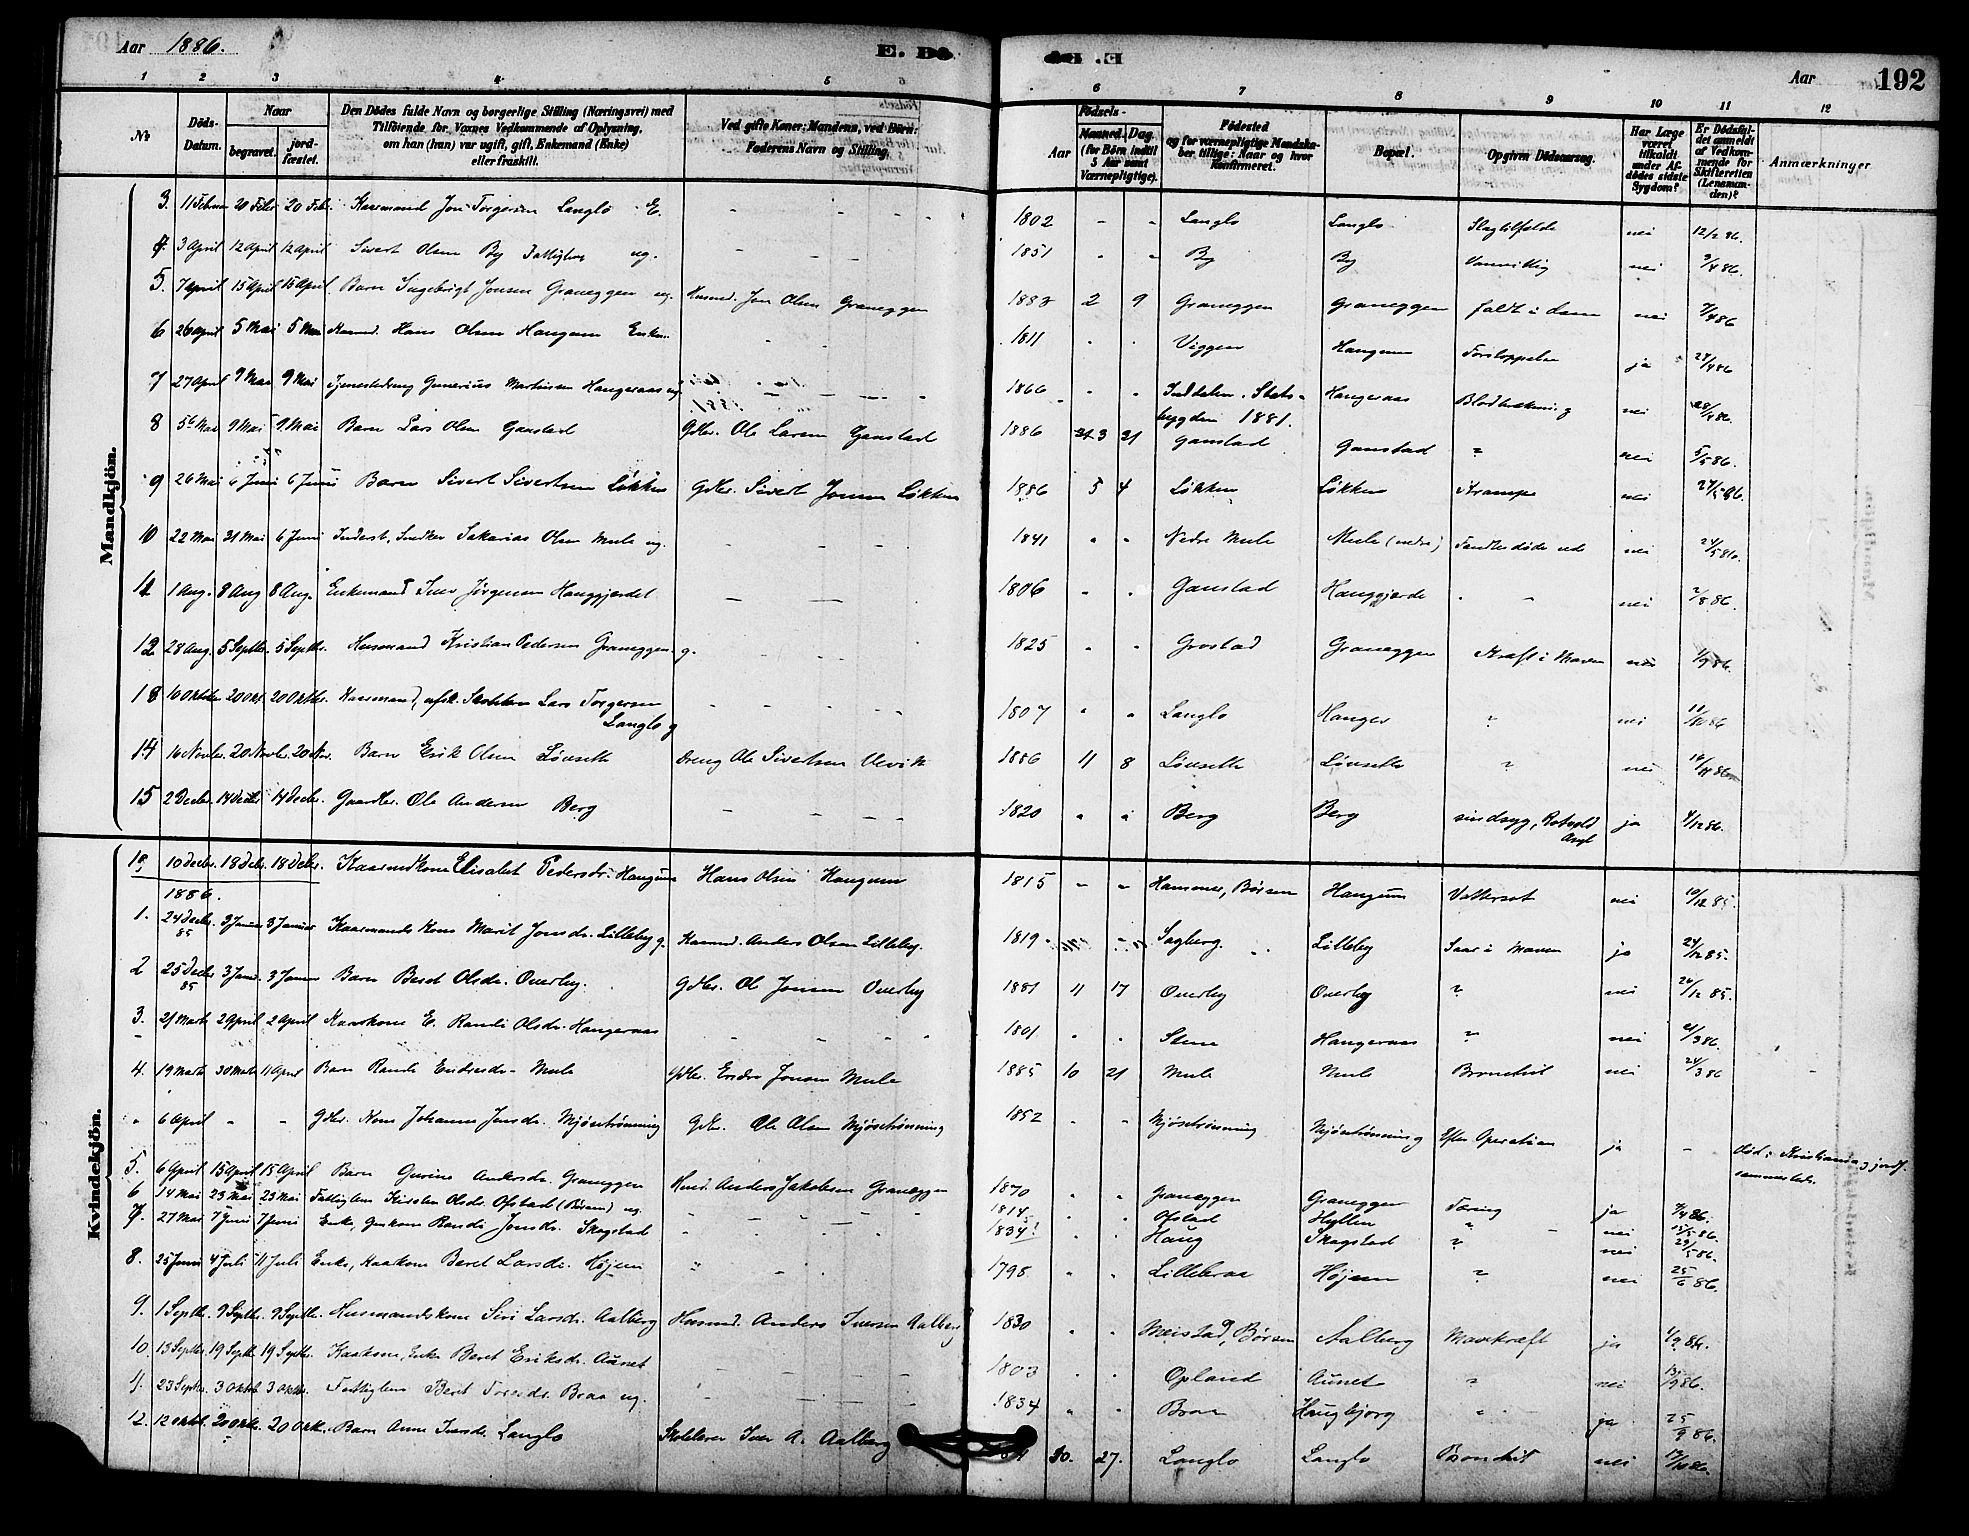 Aar 1886. E. Dö E. Dö Aar 192
1 2 3 4 5 6 7 8 9 10 11 12
№ Döds-Datum. Naar begravet. jordfæstet. Den Dödes fulde Navn og borgerlige Stilling (Næringsvei) med Tilföiende for Voxnes Vedkommende af Oplysning, om han (hun) var ugift, gift, Enkemand (Enke) eller fraskilt. Ved gifte Koner: Mandens, ved Börn: Faderens Navn og Stilling. Födsels- Aar Maaned. Dag. (for Börn indtil 5 Aar samt Værnepligtige). Födested og for værnepligtige Mandskaber tillige: Naar og hvor Konfirmeret. Bopæl. Opgiven Dödsaarsag. Har Læge været tilkaldt under Afdödes sidste Sygdom? Er Dödsfaldet anmeldt af Vedkommende for Skifteretten (Lensmanden)? Anmærkninger
Mandkjön.
3. 11 Februar 20 Febr 20 Feb. Kaarmand Jon Torgersen Langlo E. - - - 1802 - - Langlo Langlo Slagtilfælde nei 12/2 86.
4. 3 April 12 April 12 April Sivert Olsen By Fattiglem ug. - - - 1851 - - By By Vanvittig nei 3/4 86.
5. 7 April 15 April 15 April Barn Ingebrigt Jonsen Graneggen ug. Husmd. Jon Olsen Graneggen 1883 2 9 Graneggen Graneggen faldt i dam nei 7/4 86
6 26 April 5 Mai 5 Mai Kaarmd. Hans Olsen Haugum Enkem. 1811 Viggen Haugum Forstoppelse ja 28/4 86
7 27 April 9 Mai 9 Mai Tjenestedreng Gunerius Martinsen Haugeraas ug. - - 1866 Inddalen. Stadsbygden 1881. Haugeraas Blodbrækning nei 28/4 86.
8 5 Mai 9 Mai 9. Mai Barn Lars Olsen Ganstad Gdbr. Ole Larsen Ganstad 1886 3 21 Ganstad Ganstad ? nei 5/5 86.
9 26 Mai 6 Juni 6 Juni Barn Sivert Sivertsen Løkken Gdbr. Sivert Jonsen Løkken 1886 5 4 Løkken Løkken Krampe nei 27/5 86.
10 22 Mai 31 Mai 6 Juni Inderst, Snedker Sakarias Olsen Mule ug. - - - 1841 Nedre Mule Mule (nedre) Fandtes død ude nei 24/5 86.
11 1 Aug. 8 Aug 8 Aug. Enkemand Iver Jørgensen Hauggjerdet - - 1806 Ganstad Hauggjerde nei 2/8 86.
12 28 Aug. 5 Septbr. 5 Septbr. Husmand Kristian Pedersen Graneggen g. 1825 Grostad Graneggen Kræft i Maven nei 1/9 86.
13 10 Oktober 20 Okt. 20 Oktbr. Kaarmand, afsk. Skolelærer Lars Torgersen Langlo g 1807 Langlo Hanger ? nei 11/10 86
14 16 Novbr. 20 Novbr. 20 Nov. Barn Erik Olsen Lönseth Dreng Ole Sivertsen Ulevik 1886 11 8 Lönseth Lönseth ? nei 16/11 86
15 2 Decbr. 14 Decbr 14 Decbr. Gaardbr. Ole Andersen Berg - - 1820 Berg Berg sindssyg, Rotvold Asyl ja 4/12 86.
Kvindekjön.
10 Decbr. 18 Debr. 18 Debr. Kaarmdkone Elisabet Pedersdr. Haugum Hans Olsen Haugum 1815 - - Hammer, Börsen Haugum Vattersot nei 10/12 85.
1886.
1. 24 Decbr. 85 3 Januar 3 Januar Kaarmands Kone Marit Jonsdr. Lilleby g. Kaarmd. Anders Olsen Lilleby. 1819 Sagberg Lilleby Saar i Maven ja 24/12 85.
2 25 Decbr 85 3 Janr. 3 Januar Barn Beret Olsdr. Overby. Gdbr. Ole Jonsen Overby 1881 11 17 Overby Overby ? nei 26/12 85.
3. 21 Marts 2 April 2 April Kaarkone E. Randi Olsdr. Haugeraas 1801 Stene Haugeraas ? nei 21/3 86.
4. 19 Marts 30 Marts 11 April Barn Randi Endresdr. Mule Gdbr. Endre Jonsen Mule 1885 10 21 Mule Mule Bronchit nei 24/3 86
" 6 April " - Gdbr. Kone Johanna Jensdr. Mjösetrönning Gdbr. Ole Olsen Mjösetrönning 1852 Mjösetrönning Mjösetrönning Efter Operation ja - Död i Kristiania og jordf. sammesteds.
5. 6 April 15 April 15 April Barn Gurine Andersdr. Graneggen Husmd. Anders Jakobsen Graneggen 1870 Graneggen Graneggen Tæring ja 7/4 86.
6 14 Mai 23 Mai 23 Mai Fattiglem Kirsten Olsdr. Ofstad (Börsen) ug. 1814 Ofstad Hyllen nei 15/5 86.
7. 27 Mai 7 Juni 7 Juni Enke, Randi Jonsdr. Skogstad 1834? Haug Skogstad ? nei 29/5 86.
8. 25 Juni 4 Juli 11 Juli Enke, Kaarkone Beret Larsdr. Höjem 1798 Lillebraa Höjem ? nei 25/6 86.
9. 1 Septbr. 9 Septbr. 9 Septbr. Husmandskone Siri Larsdr. Aalberg Husmd. Anders Iversen Aalberg 1830 Meistad, Börsen Aalberg Mavekræft ja 4/9 86.
10. 13 Septbr. 19 Septb. 19 Septbr. Kaarkone, Enke Beret Eriksdr. Aunet 1803 Opland Aunet ? nei 13/9 86.
11. 23 Septbr. 3 Oktbr 3 Oktbr. Fattiglem Beret Braa ug. 1834 Braa Haugbjørg ja 25/9 86.
12. 12 Oktbr. 20 Okt. 20 Okt. Barn Anne Iversdr. Langlo Skolelærer Iver A. Aalberg 10. 27. Langlo Langlo Bronchit nei 13/10 86.